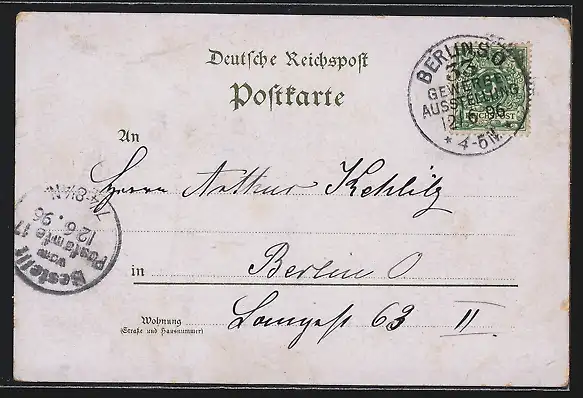 Deutsche Reichspost
Postkarte
BERLIN SO
33
GEWERBE
AUSSTELLUNG
12.6.96
* 4-5N. *
An
Herrn Arthur
in Berlin O
Wohnung
(Straße und Hausnummer)
63 II
Bestellt
vom
Postamte 17
12.6.96
7¼-8¼N.